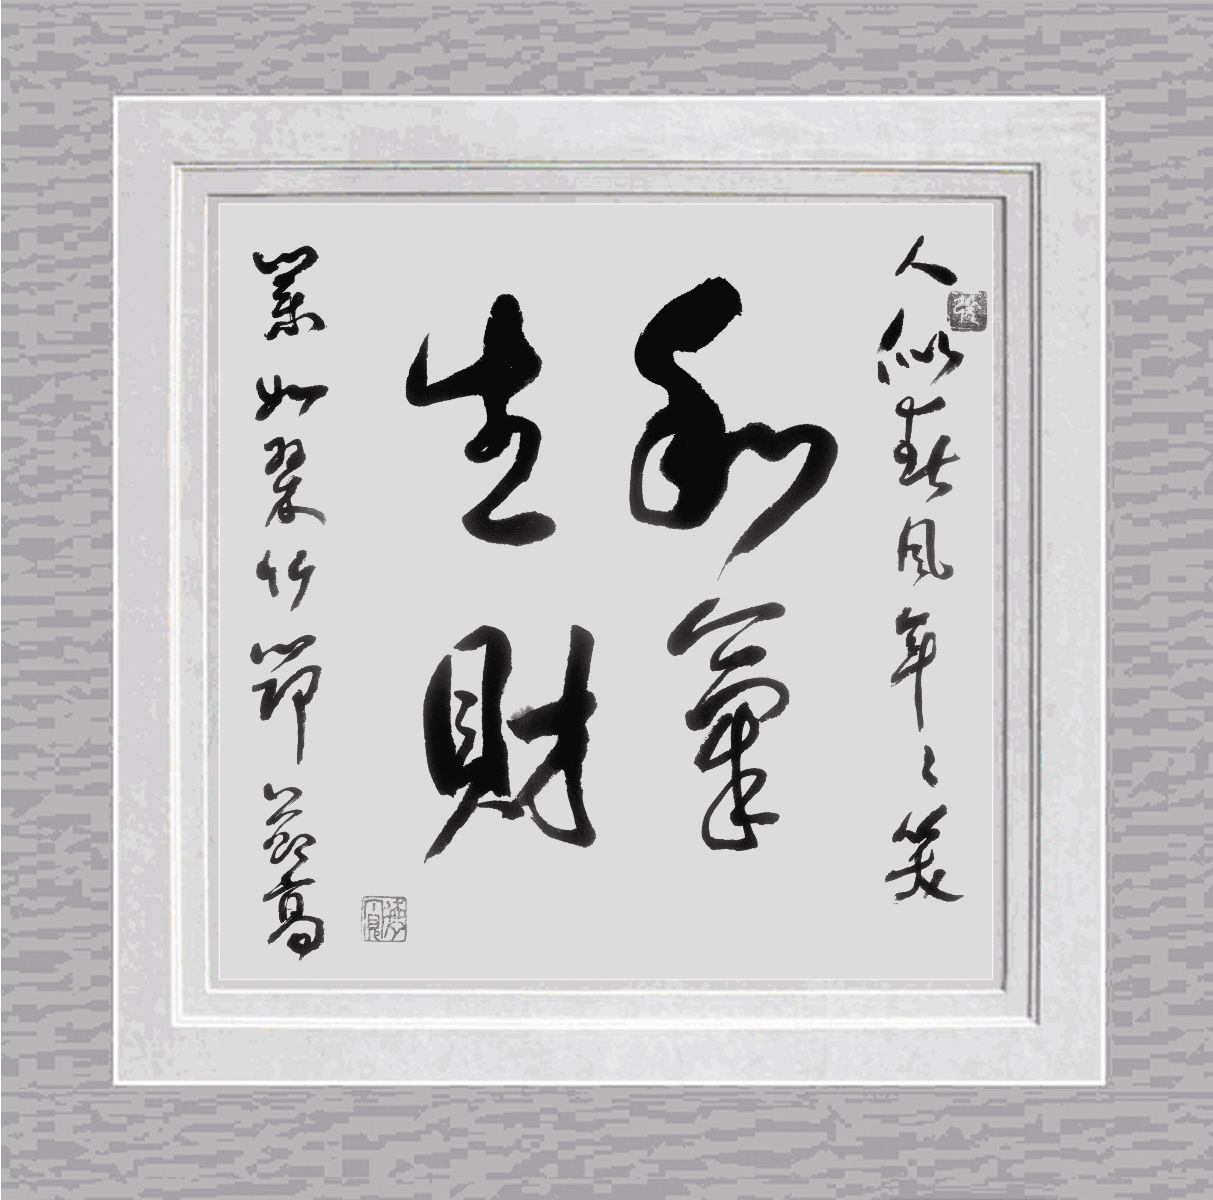 人似春風年々笑
和氣
生財
業如翠竹節節高